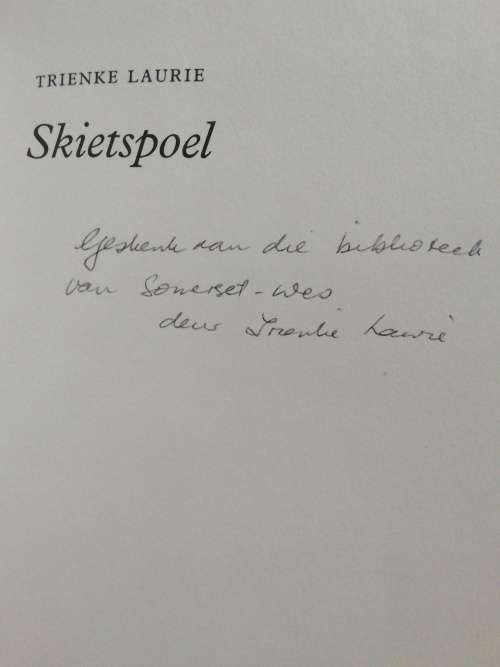 TRIENKE LAURIE
Skietspoel
Geskenk aan die biblioteek
van Somerset-Wes
deur Trienke Laurie